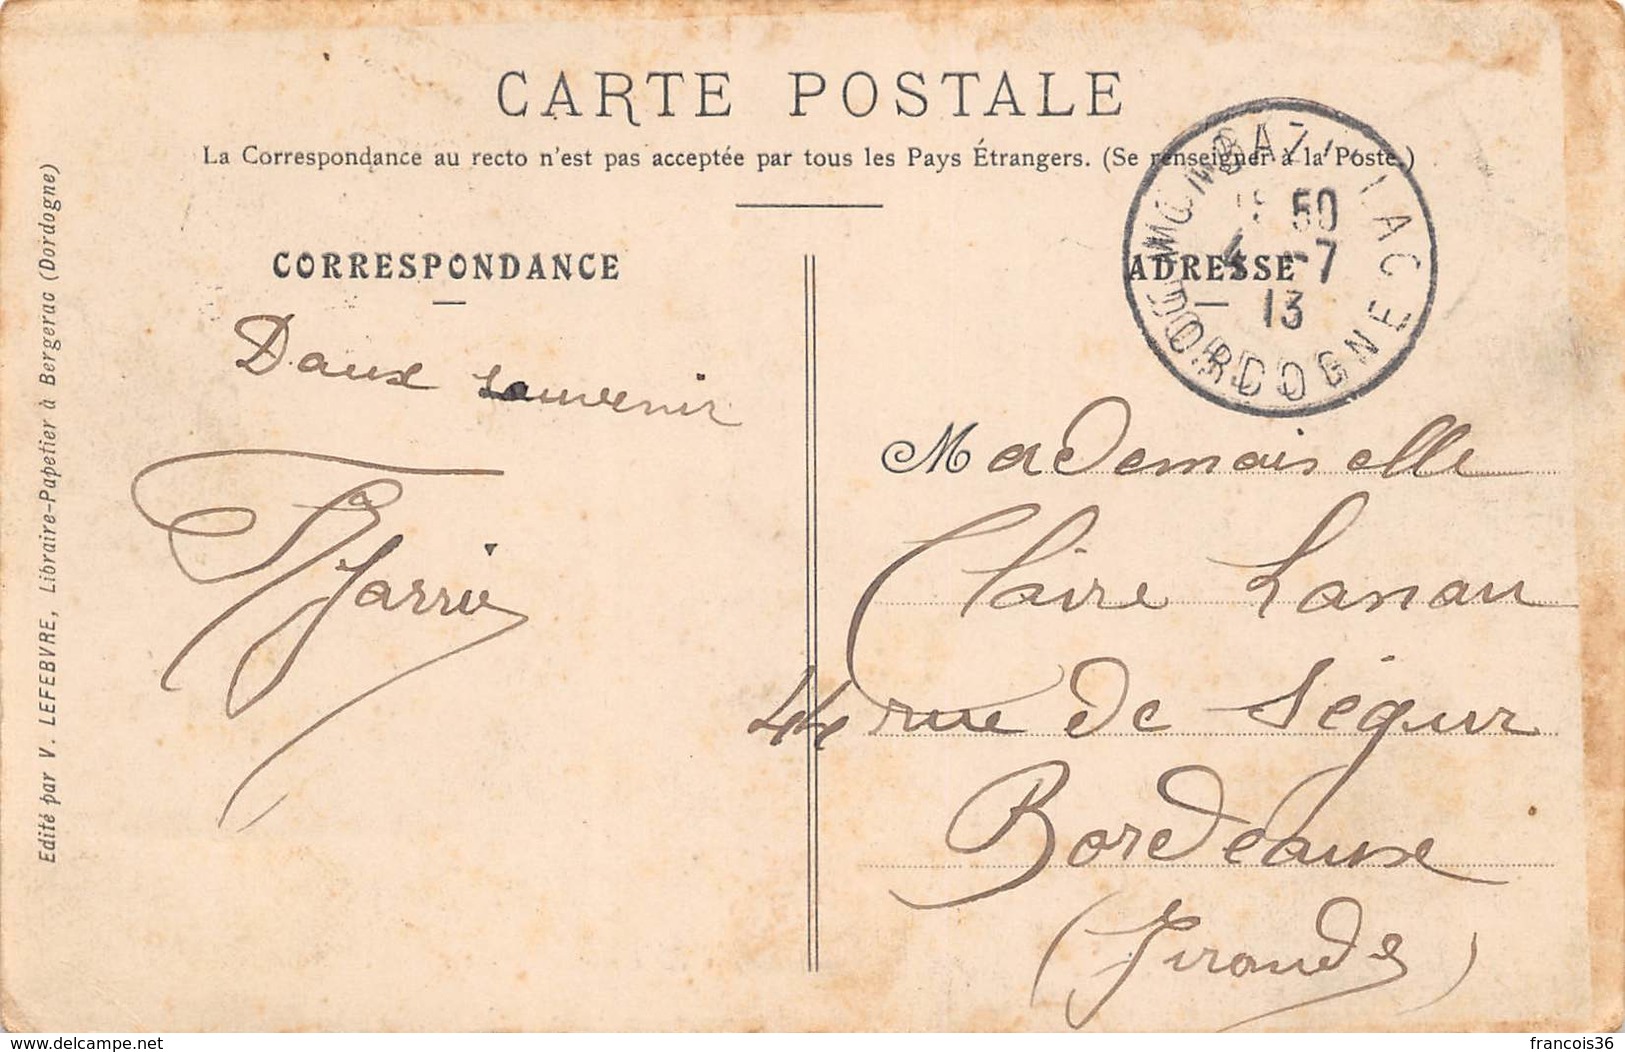 CARTE POSTALE
La Correspondance au recto n'est pas acceptée par tous les Pays Étrangers. (Se renseigner à la Poste.)
CORRESPONDANCE
ADRESSE
MONBAZILLAC
50
4 -7
13
DORDOGNE
Doux souvenir
Mademoiselle
Claire Lanau
44 rue de Ségur
Bordeaux
(Gironde)
Edité par V. LEFEBVRE, Libraire-Papetier à Bergerac (Dordogne)
delcampe.net
francois36